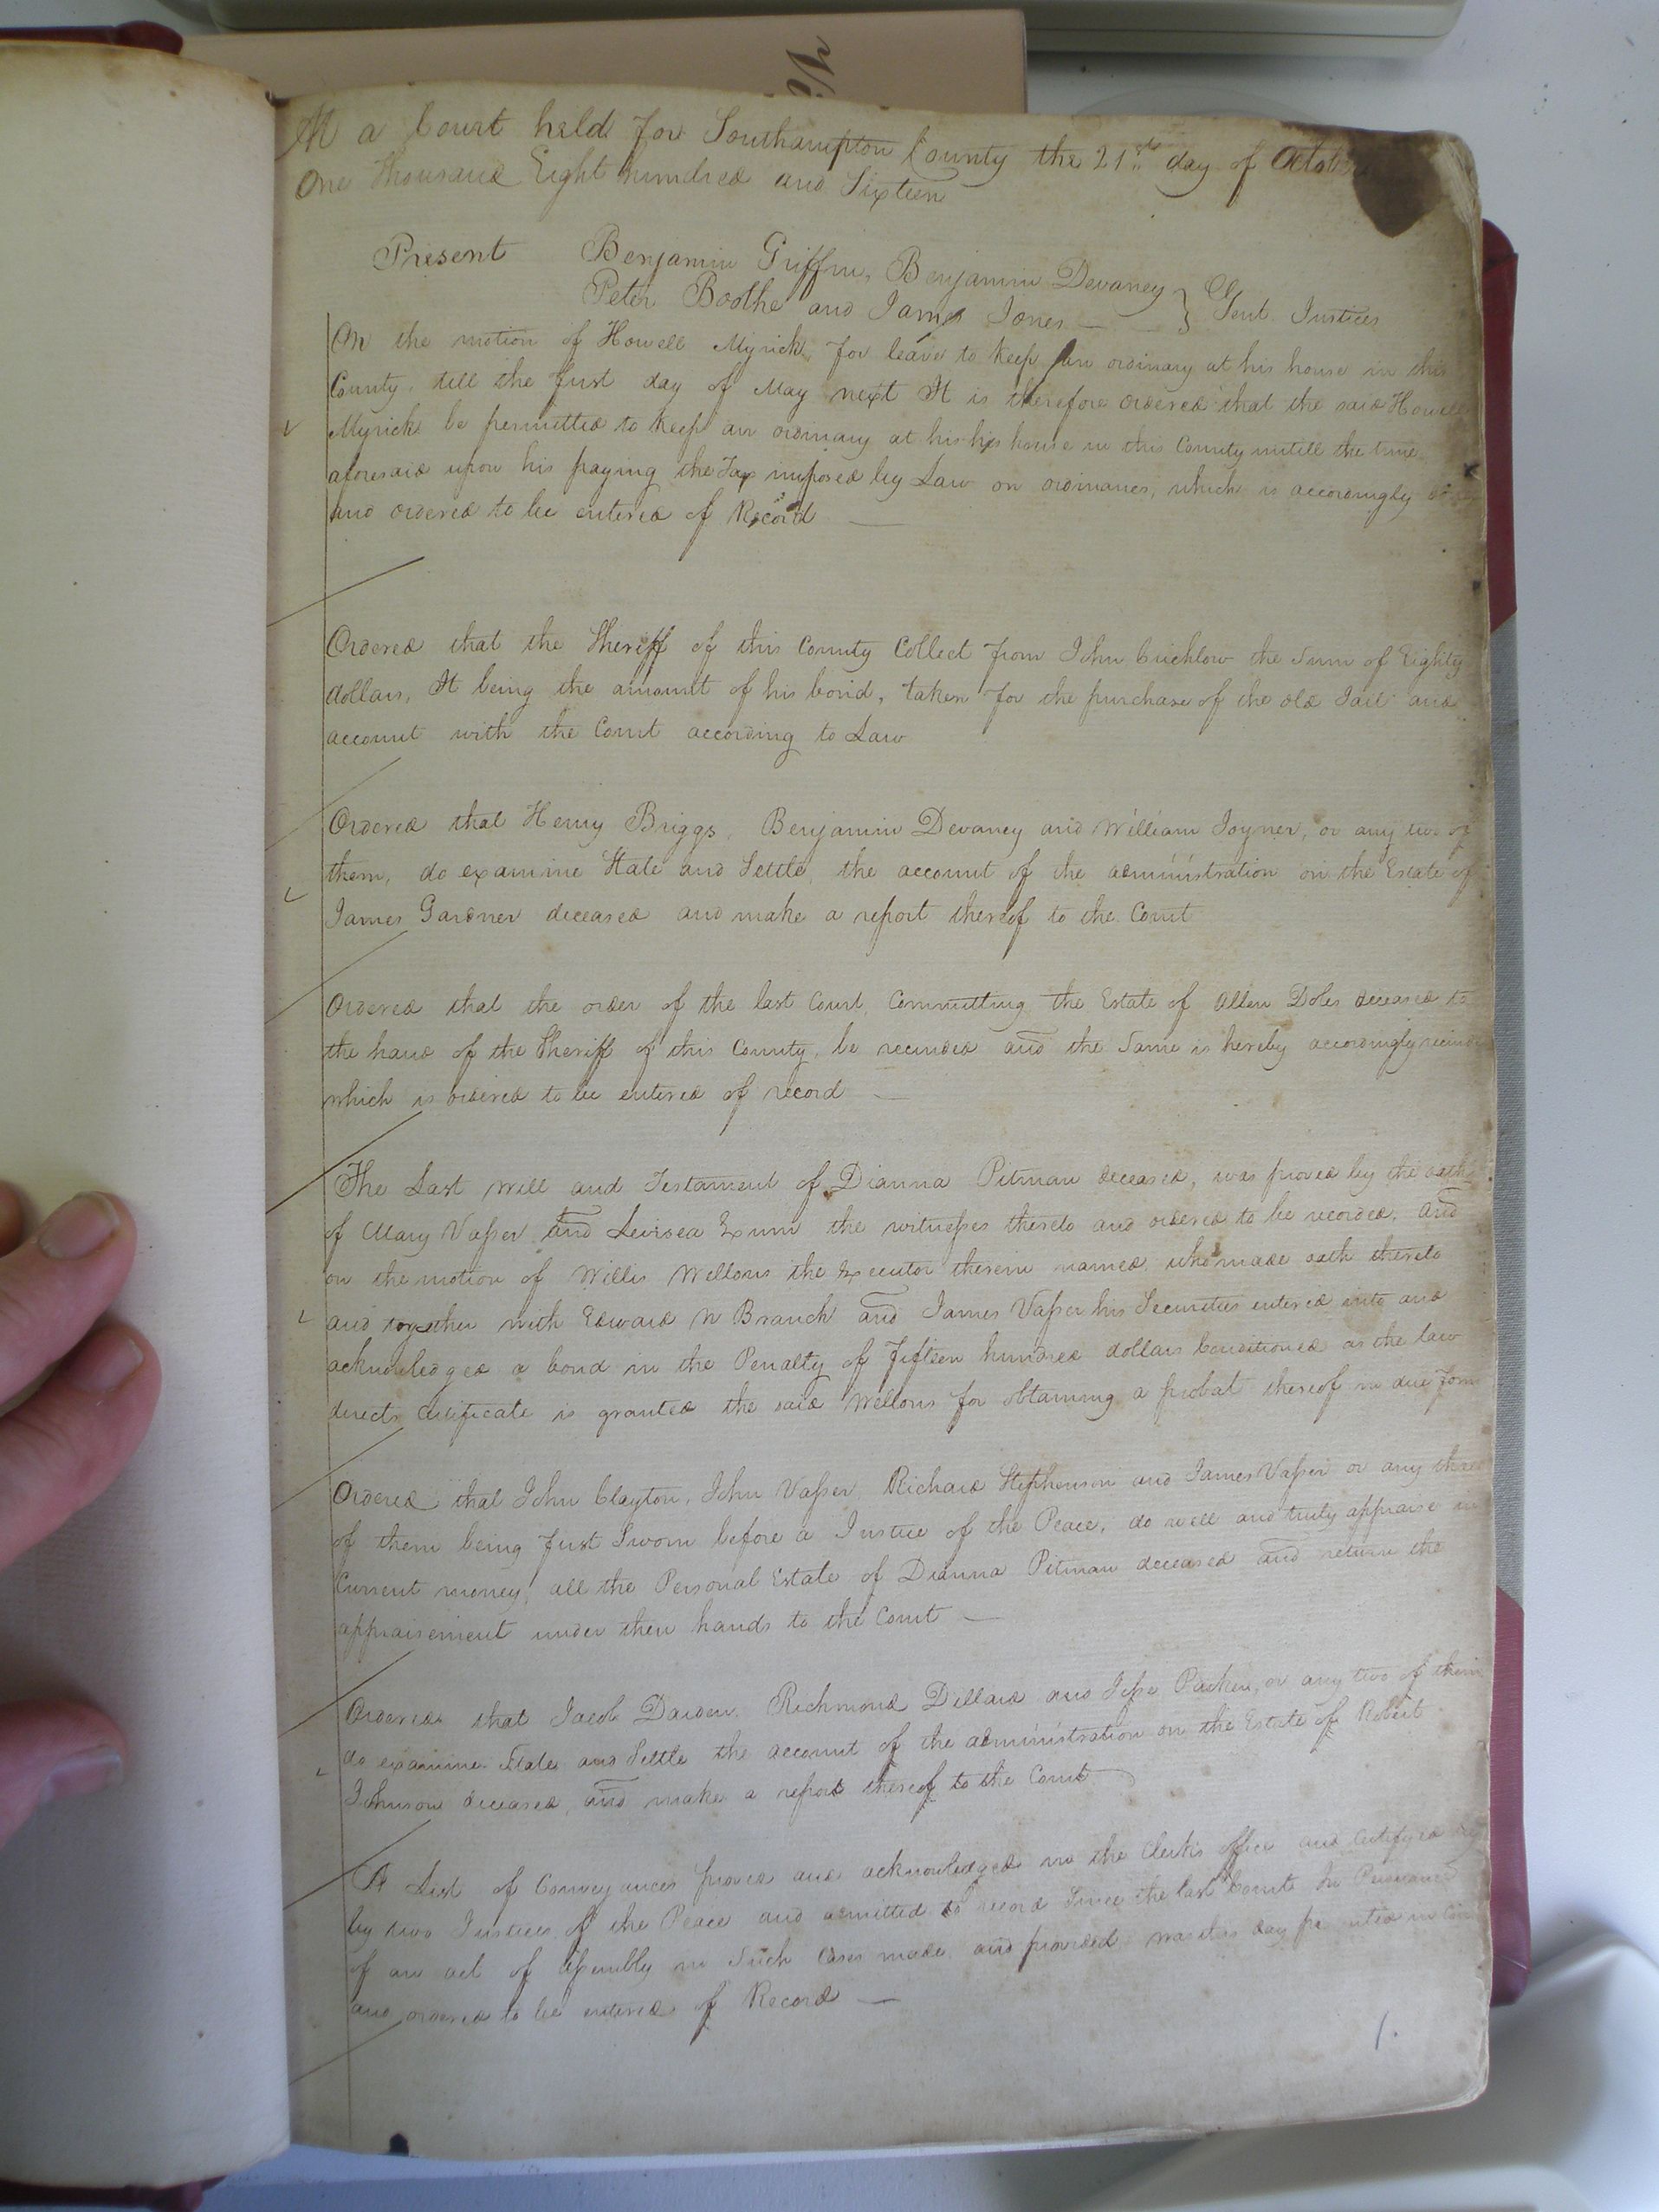 At a Court held for Southampton County the 21st day of October
One thousand Eight hundred and Sixteen
Present Benjamin Griffin, Benjamin Devaney
Peter Boothe and James Jones } Gent. Justices
On the motion of Howell Myrick, for leave to keep an ordinary at his house in this
County, till the first day of May next It is therefore ordered that the said Howell
Myrick be permitted to keep an ordinary at his house in this County untill the time
aforesaid upon his paying the Tax imposed by Law on ordinaries, which is accordingly
and ordered to be entered of Record
Ordered that the Sheriff of this County Collect from John Crichlow the Sum of Eighty
dollars, It being the amount of his bond, taken for the purchase of the old Jail and
account with the Court according to Law
Ordered that Henry Briggs, Benjamin Devaney and William Joyner, or any two of
them, do examine State and Settle, the account of the administration on the Estate of
James Gardner deceased and make a report thereof to the Court
Ordered that the order of the last Court, Committing the Estate of Allen Doles deceased to
the hand of the Sheriff of this County, be recinded and the Same is hereby accordingly recinded
which is ordered to be entered of record
The Last Will and Testament of Dianna Pitman deceased, was proved by the oath
of Mary Vasser and Levisea Exum the witnesses thereto and ordered to be recorded. and
on the motion of Willis Wellons the Executor therein named, who made oath thereto
and together with Edward W Branch and James Vasser his Securities entered into and
acknowledged a bond in the Penalty of fifteen hundred dollars Conditioned as the law
directs Certificate is granted the said Wellons for obtaining a probat thereof in due form
Ordered that John Clayton, John Vasser, Richard Stephenson and James Vasser or any three
of them being first Sworn before a Justice of the Peace, do well and truly appraise in
Current money, all the Personal Estate of Dianna Pitman deceased and return the
appraisement under their hands to the Court
Ordered that Jacob Darden, Richmond Dillard and Jesse Parker, or any two of them
do examine State and Settle the account of the administration on the Estate of Robert
Johnson deceased, and make a report thereof to the Court
A List of Conveyances proved and acknowledged in the Clerks office and Certifyed
by two Justices of the Peace and admitted to record Since the last Court In Persuance
of an act of assembly in Such Cases made and provided was this day presented in Court
and ordered to be entered of Record
1.